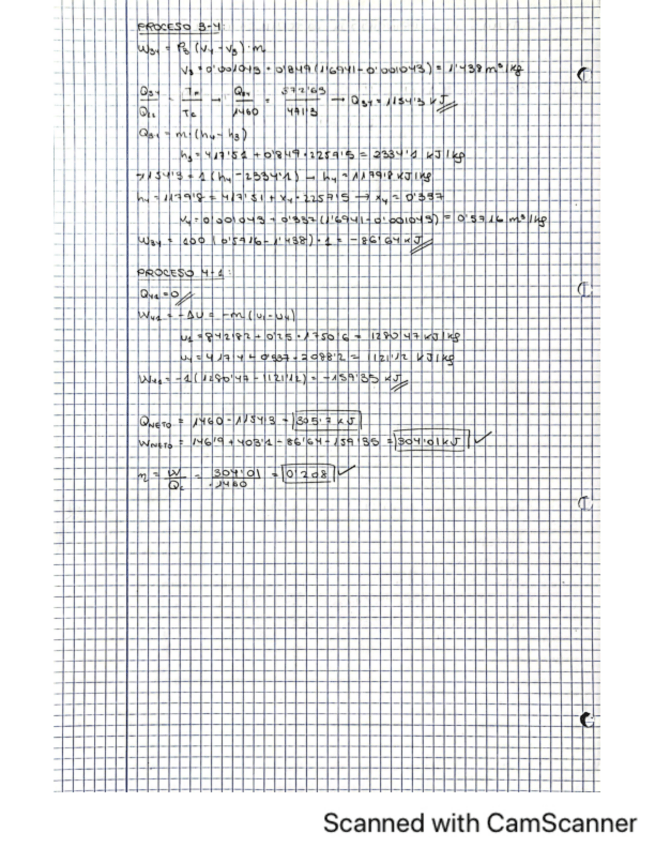 PROCESO 3-4:
W34 = P3 (v4 - v3) · m
v3 = 0'001043 + 0'849 (1'6941 - 0'001043) = 1'438 m³/kg
Q34/Q12 = TF/TC → Q34/1460 = 372'69/471'3 → Q34 = 1154'3 kJ
Q34 = m · (h4 - h3)
h3 = 417'51 + 0'849 · 2257'5 = 2334'1 kJ/kg
-1154'3 = 1 (h4 - 2334'1) → h4 = 1179'8 kJ/kg
h4 = 1179'8 = 417'51 + x4 · 2257'5 → x4 = 0'337
v4 = 0'001043 + 0'337 (1'6941 - 0'001043) = 0'5716 m³/kg
W34 = 100 (0'5716 - 1'438) · 1 = -86'64 kJ
PROCESO 4-1:
Q41 = 0
W41 = -ΔU = -m (u1 - u4)
u1 = 842'82 + 0'25 · 1750'6 = 1280'47 kJ/kg
u4 = 417'4 + 0'337 · 2088'2 = 1121'12 kJ/kg
W41 = -1 (1280'47 - 1121'12) = -159'35 kJ
QNETO = 1460 - 1154'3 = 305'7 kJ
WNETO = 146'9 + 403'1 - 86'64 - 159'35 = 304'01 kJ ✓
η = W/Qc = 304'01/1460 = 0'208 ✓
Scanned with CamScanner